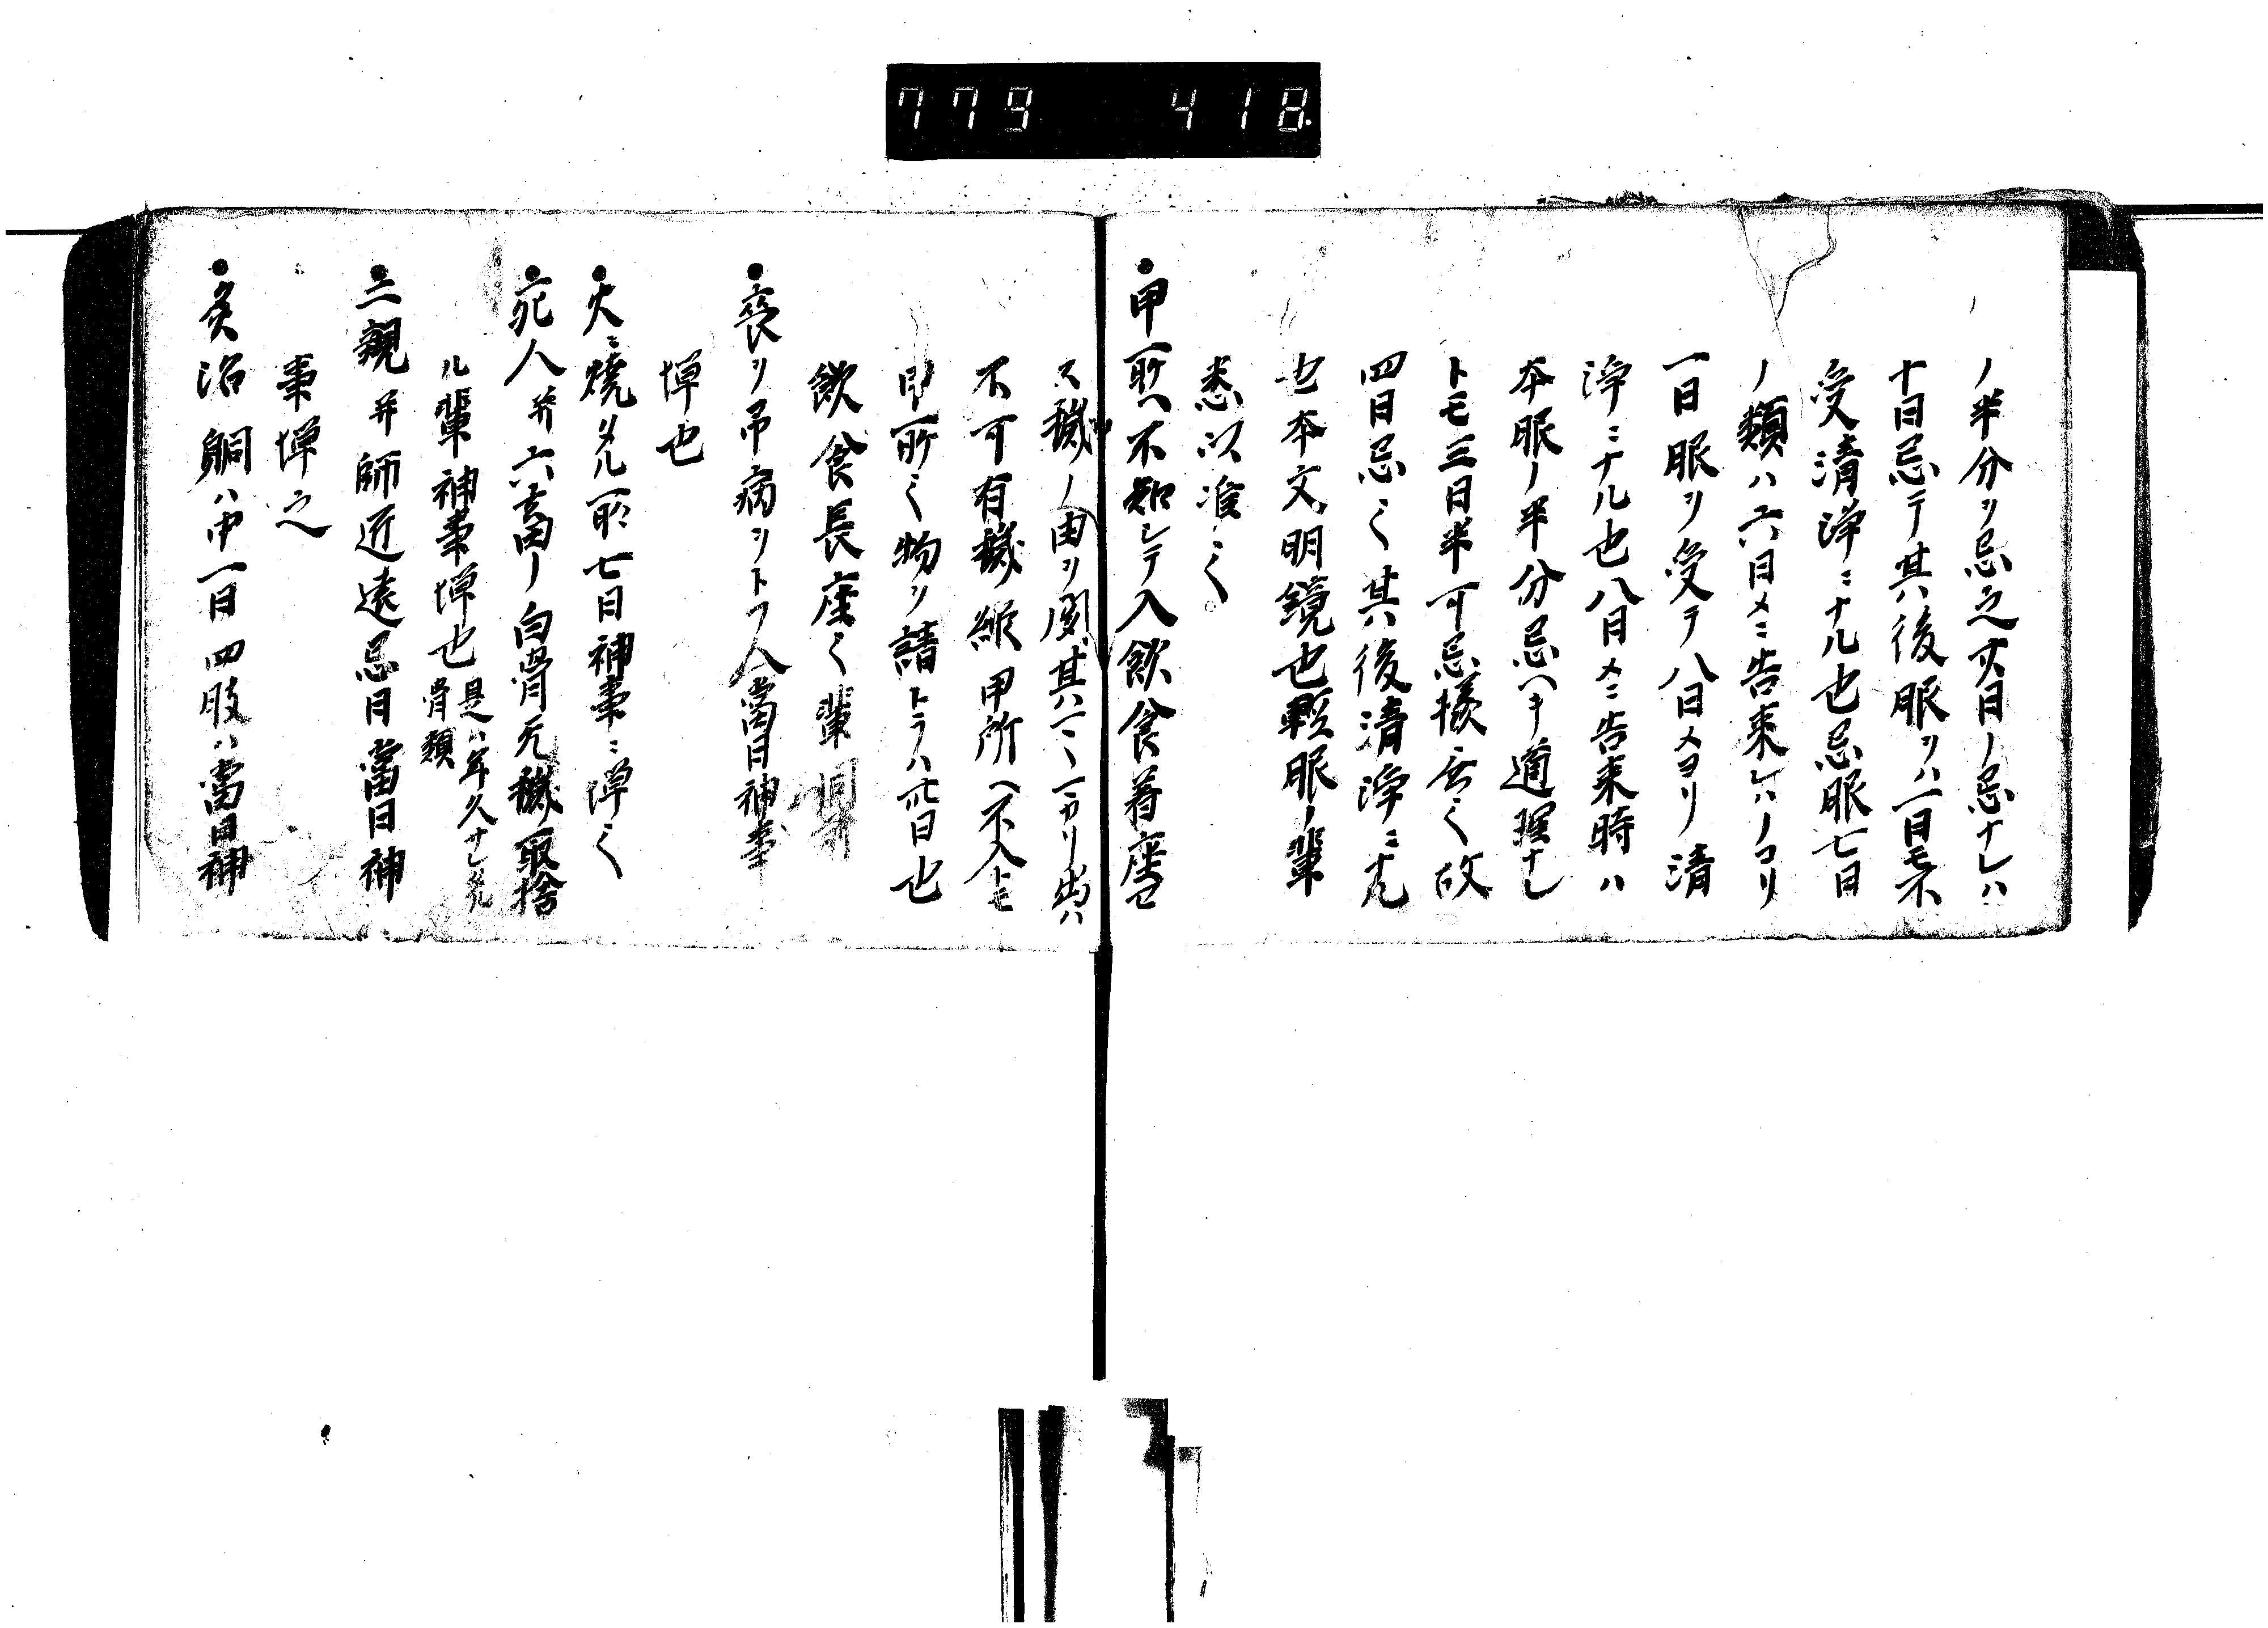 779 418
ノ半分ヲ忌之廿日ノ忌ナレハ
十日忌テ其後服ヲハ一日モ不
受清浄ニナル也忌服七日
ノ類ハ六日メニ告来レハノコリ
一日服ヲ受テ八日メヨリ清
浄ニナル也八日メニ告来時ハ
本服ノ半分忌ヘキ道理ナレ
トモ三日半可忌様無之故
四日忌之其後清浄ニナル
也本文明鏡也軽服ノ輩
悉以准之
●甲所ヘ不知シテ入飲食着座セ
ス穢ノ由ヲ聞其ママ罷リ出ハ
不可有穢縦甲所ヘ不入トモ
甲所之物ヲ請トラハ
飲食長座之輩同前
●喪ヲ弔病ヲトフ人當日神事
憚也
●火ニ焼タル所七日神事ニ憚之
●死人并六畜ノ白骨无穢取捨
ル輩神事憚也是ハ年久サレタル骨類
●二親并師匠遠忌日當日神
事憚之
●灸治胴ハ中一日四肢ハ當日神